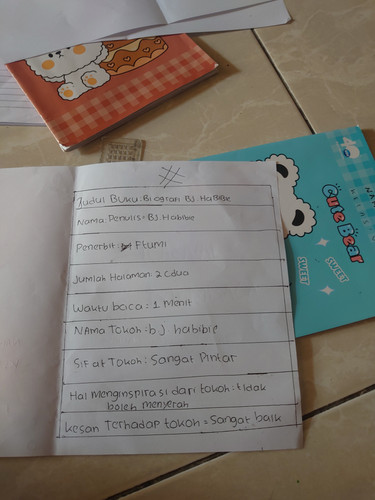 Judul Buku: Biografi BJ. Habibie
Nama. Penulis = BJ. Habibie
Penerbit: Ftumi
Jumlah Halaman: 2 cdua
Waktu baca: 1 Menit
NAma Tokoh: b.J habibie
Sifat Tokoh: Sangat Pintar
Hal menginspirasi dari tokoh: tidak
boleh menyerah
kesan Terhadap tokoh = Sangat baik
Cute Bear
SWEET
SWEET